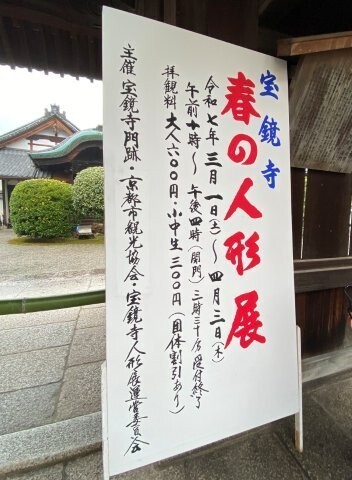 宝鏡寺
春の人形展
令和七年三月一日(土)〜四月三日(木)
午前十時〜午後四時(閉門)三時三十分受付終了
拝観料 大人六〇〇円・小中生三〇〇円(団体割引あり)
主催 宝鏡寺門跡・京都市観光協会・宝鏡寺人形展運営委員会